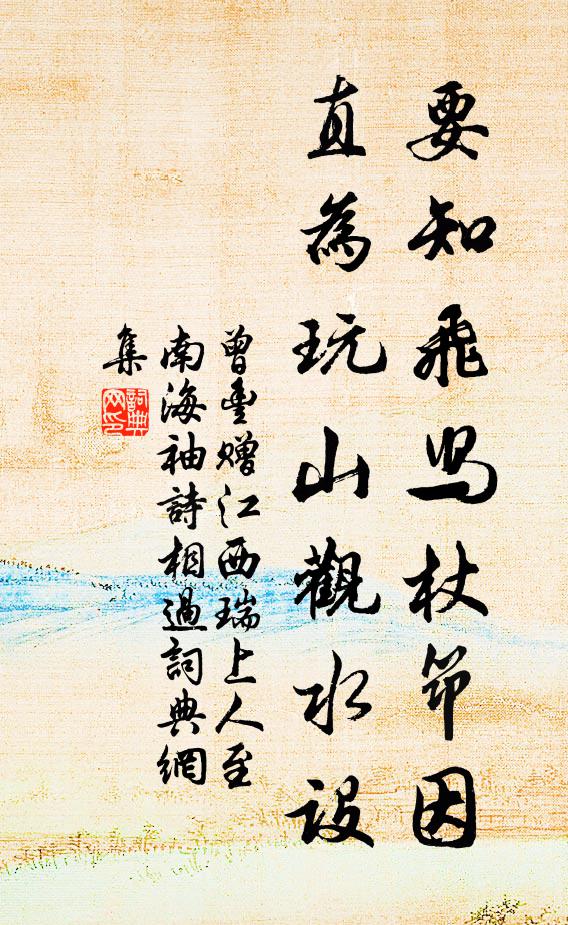 要知飛舃杖笻因
直為玩山觀水設
曾豐贈江西瑞上人至
南海袖詩相過詞典網
集
詞典
网印